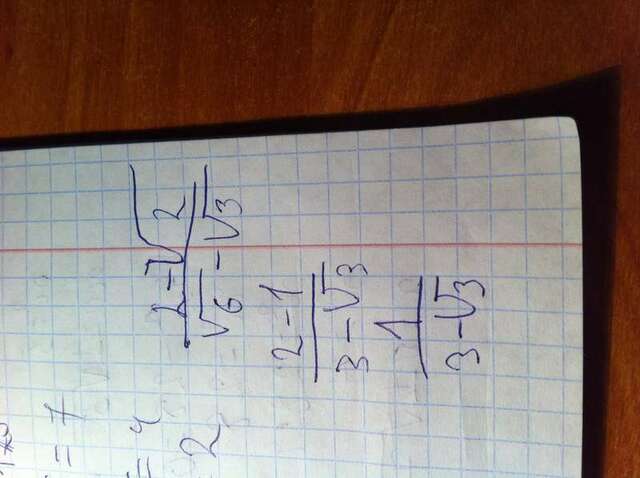 = 7
= 4
2
2 - √2
√6 - √3
2 - 1
3 - √3
1
3 - √3